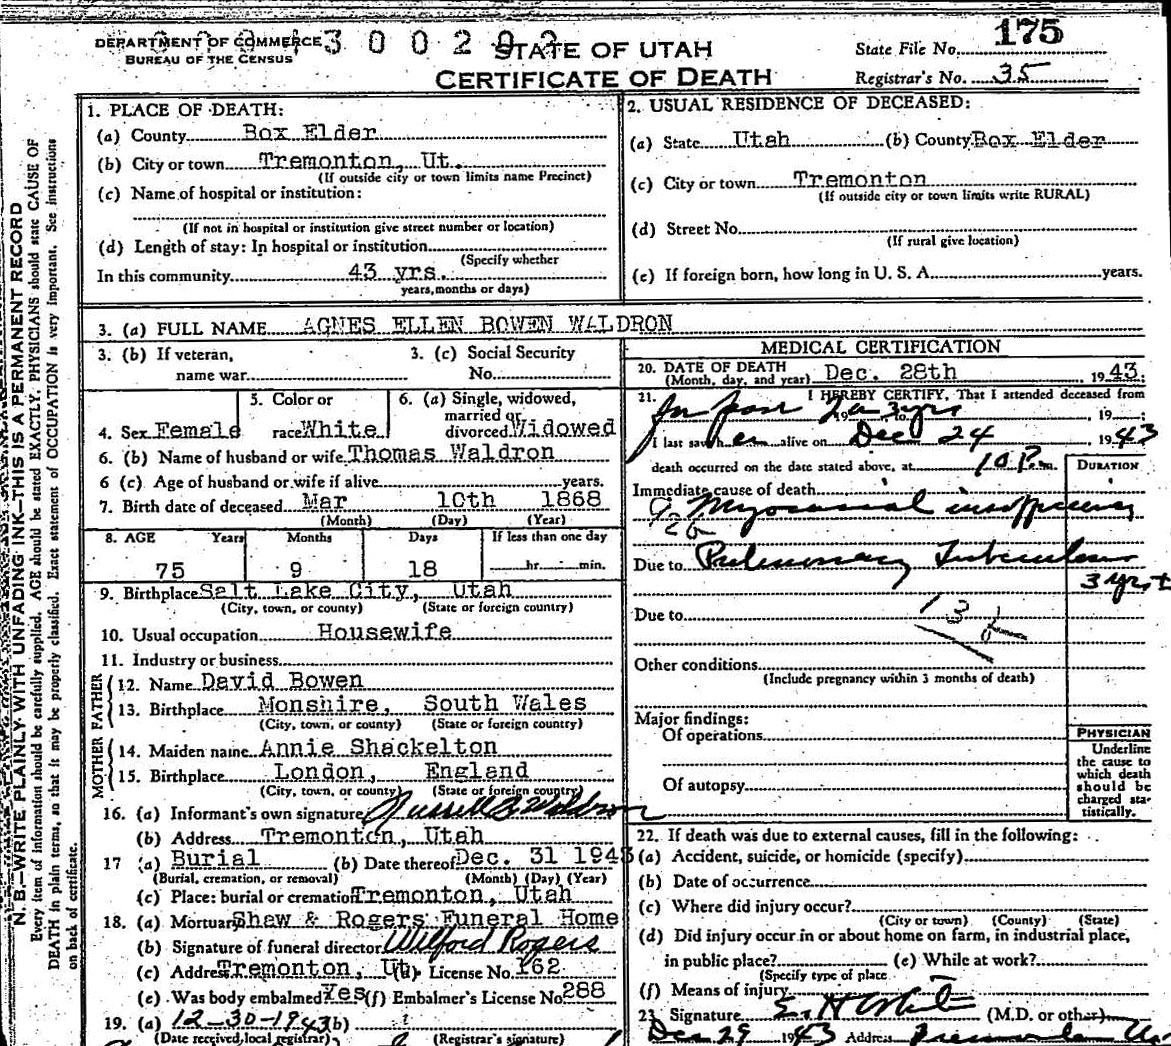 DEPARTMENT OF COMMERCE
BUREAU OF THE CENSUS
3 0 0 2 0 2
STATE OF UTAH
CERTIFICATE OF DEATH
State File No. 175
Registrar's No. 35
N. B.—WRITE PLAINLY WITH UNFADING INK—THIS IS A PERMANENT RECORD
Every item of information should be carefully supplied. AGE should be stated EXACTLY. PHYSICIANS should state CAUSE OF
DEATH in plain terms, so that it may be properly classified. Exact statement of OCCUPATION is very important. See instructions
on back of certificate.
1. PLACE OF DEATH:
(a) County Box Elder
(b) City or town Tremonton, Ut.
(If outside city or town limits name Precinct)
(c) Name of hospital or institution:
(If not in hospital or institution give street number or location)
(d) Length of stay: In hospital or institution
(Specify whether
In this community 43 yrs.
years, months or days)
2. USUAL RESIDENCE OF DECEASED:
(a) State Utah (b) County Box Elder
(c) City or town Tremonton
(If outside city or town limits write RURAL)
(d) Street No.
(If rural give location)
(e) If foreign born, how long in U. S. A. years.
3. (a) FULL NAME AGNES ELLEN BOWEN WALDRON
3. (b) If veteran,
name war
3. (c) Social Security
No.
4. Sex Female
5. Color or
race White
6. (a) Single, widowed,
married or
divorced Widowed
6. (b) Name of husband or wife Thomas Waldron
6 (c) Age of husband or wife if alive years.
7. Birth date of deceased Mar 10th 1868
(Month) (Day) (Year)
8. AGE Years Months Days If less than one day
75 9 18 hr. min.
9. Birthplace Salt Lake City, Utah
(City, town, or county) (State or foreign country)
10. Usual occupation Housewife
11. Industry or business
FATHER
12. Name David Bowen
13. Birthplace Monshire, South Wales
(City, town, or county) (State or foreign country)
MOTHER
14. Maiden name Annie Shackelton
15. Birthplace London, England
(City, town, or county) (State or foreign country)
16. (a) Informant's own signature Russell B Waldron
(b) Address Tremonton, Utah
17 (a) Burial (b) Date thereof Dec. 31 1943
(Burial, cremation, or removal) (Month) (Day) (Year)
(c) Place: burial or cremation Tremonton, Utah
18. (a) Mortuary Shaw & Rogers Funeral Home
(b) Signature of funeral director Wilford Rogers
(c) Address Tremonton, Ut. (d) License No. 162
(e) Was body embalmed Yes (f) Embalmer's License No. 288
19. (a) 12-30-1943 (b)
(Date received, local registrar) (Registrar's signature)
MEDICAL CERTIFICATION
20. DATE OF DEATH
(Month, day, and year) Dec. 28th 1943;
21. I HEREBY CERTIFY, That I attended deceased from
for past 2 or 3 yrs 19
I last saw her alive on Dec 24 1943
death occurred on the date stated above, at 10 P.m.
DURATION
Immediate cause of death
Myocardial insufficiency
Due to Pulmonary Tuberculosis
3 yrs +
Due to
13 b
Other conditions
(Include pregnancy within 3 months of death)
Major findings:
Of operations
Of autopsy
PHYSICIAN
Underline
the cause to
which death
should be
charged sta-
tistically.
22. If death was due to external causes, fill in the following:
(a) Accident, suicide, or homicide (specify)
(b) Date of occurrence
(c) Where did injury occur?
(City or town) (County) (State)
(d) Did injury occur in or about home on farm, in industrial place,
in public place? (e) While at work?
(Specify type of place
(f) Means of injury
23 Signature (M.D. or other)
Dec 29 1943 Address Tremonton Ut